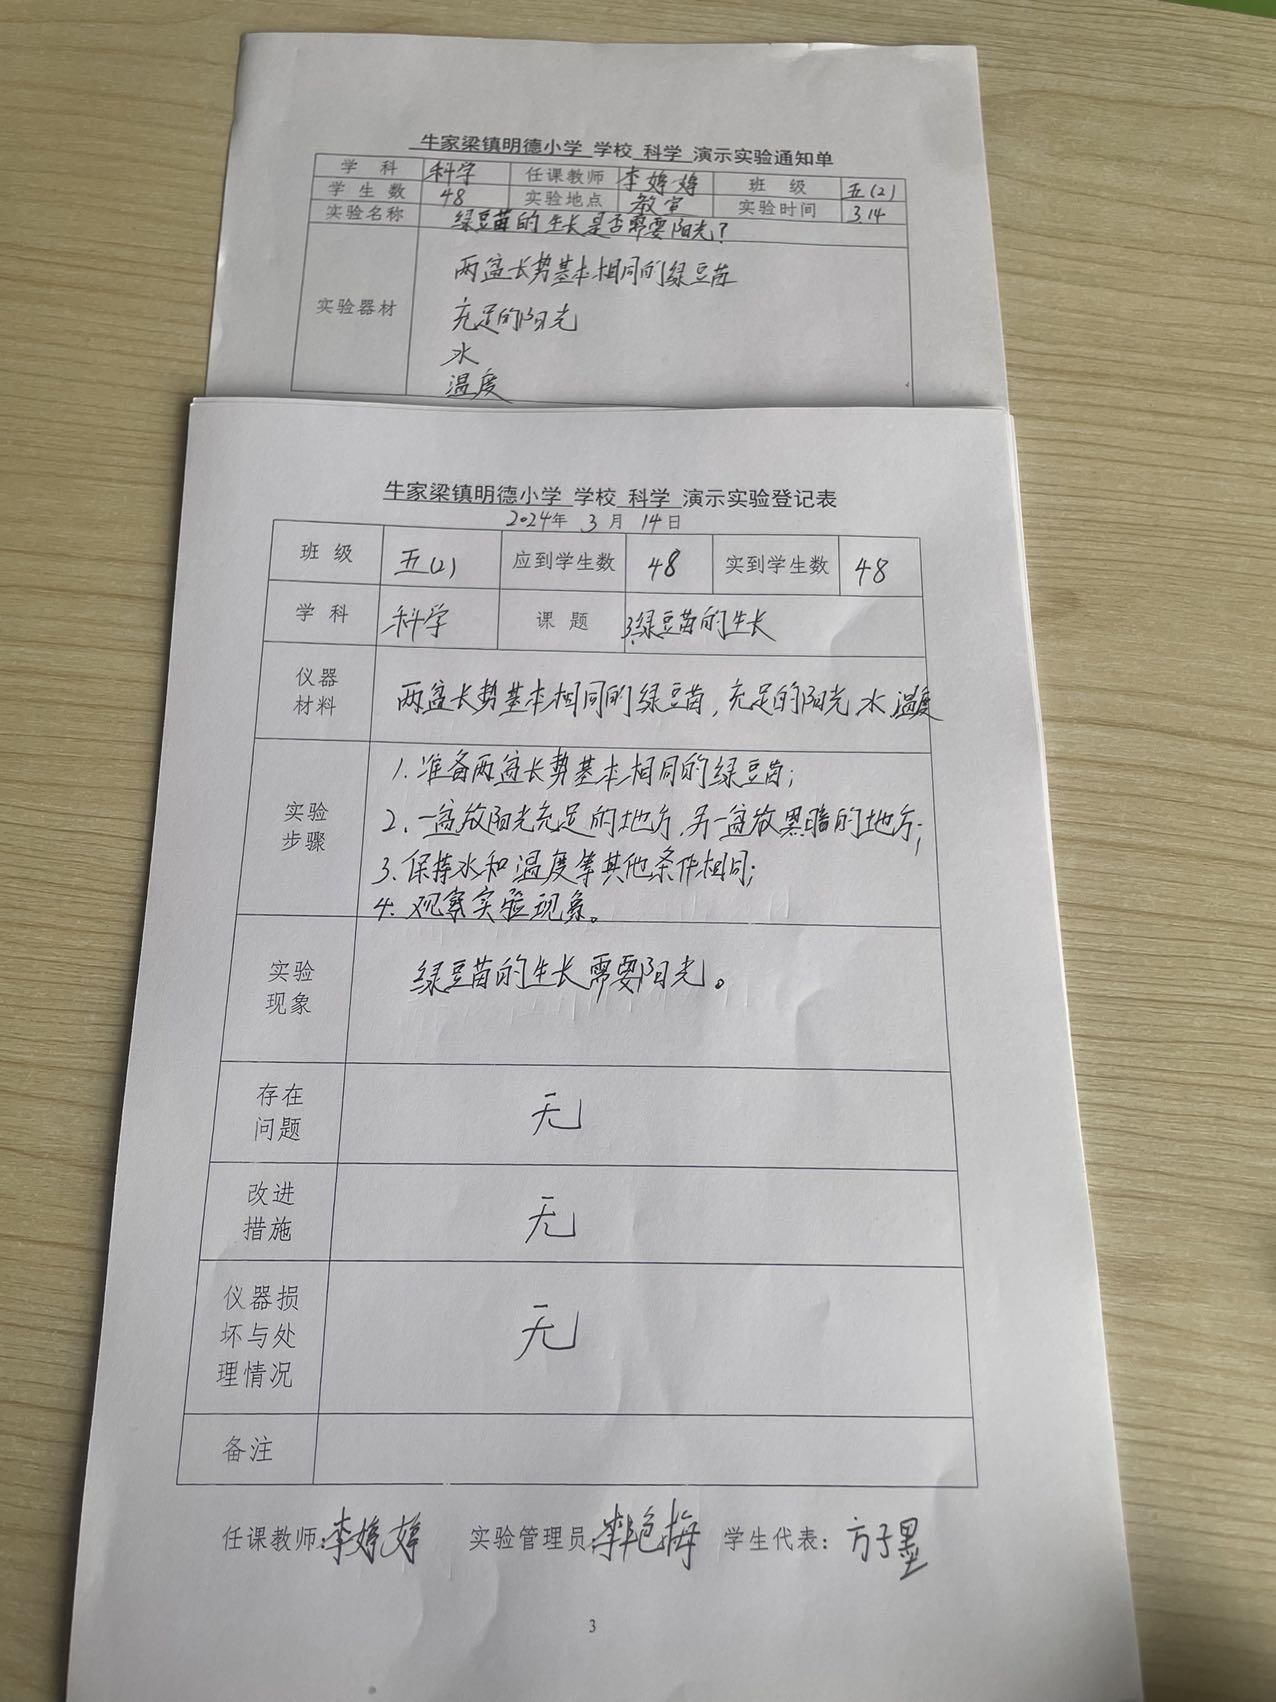 牛家梁镇明德小学 学校 科学 演示实验通知单
学 科 科学 任课教师 李婷婷 班 级 五(2)
学生数 48 实验地点 教室 实验时间 3.14
实验名称 绿豆苗的生长是否需要阳光?
实验器材
两盆长势基本相同的绿豆苗
充足的阳光
水
温度
牛家梁镇明德小学 学校 科学 演示实验登记表
2024年 3 月 14 日
班 级 五(2) 应到学生数 48 实到学生数 48
学 科 科学 课 题 3.绿豆苗的生长
仪器
材料
两盆长势基本相同的绿豆苗,充足的阳光 水 温度
实验
步骤
1.准备两盆长势基本相同的绿豆苗;
2、一盆放阳光充足的地方,另一盆放黑暗的地方;
3、保持水和温度等其他条件相同;
4. 观察实验现象。
实验
现象
绿豆苗的生长需要阳光。
存在
问题
无
改进
措施
无
仪器损
坏与处
理情况
无
备注
任课教师:李婷婷 实验管理员:李艳梅 学生代表:方子墨
3